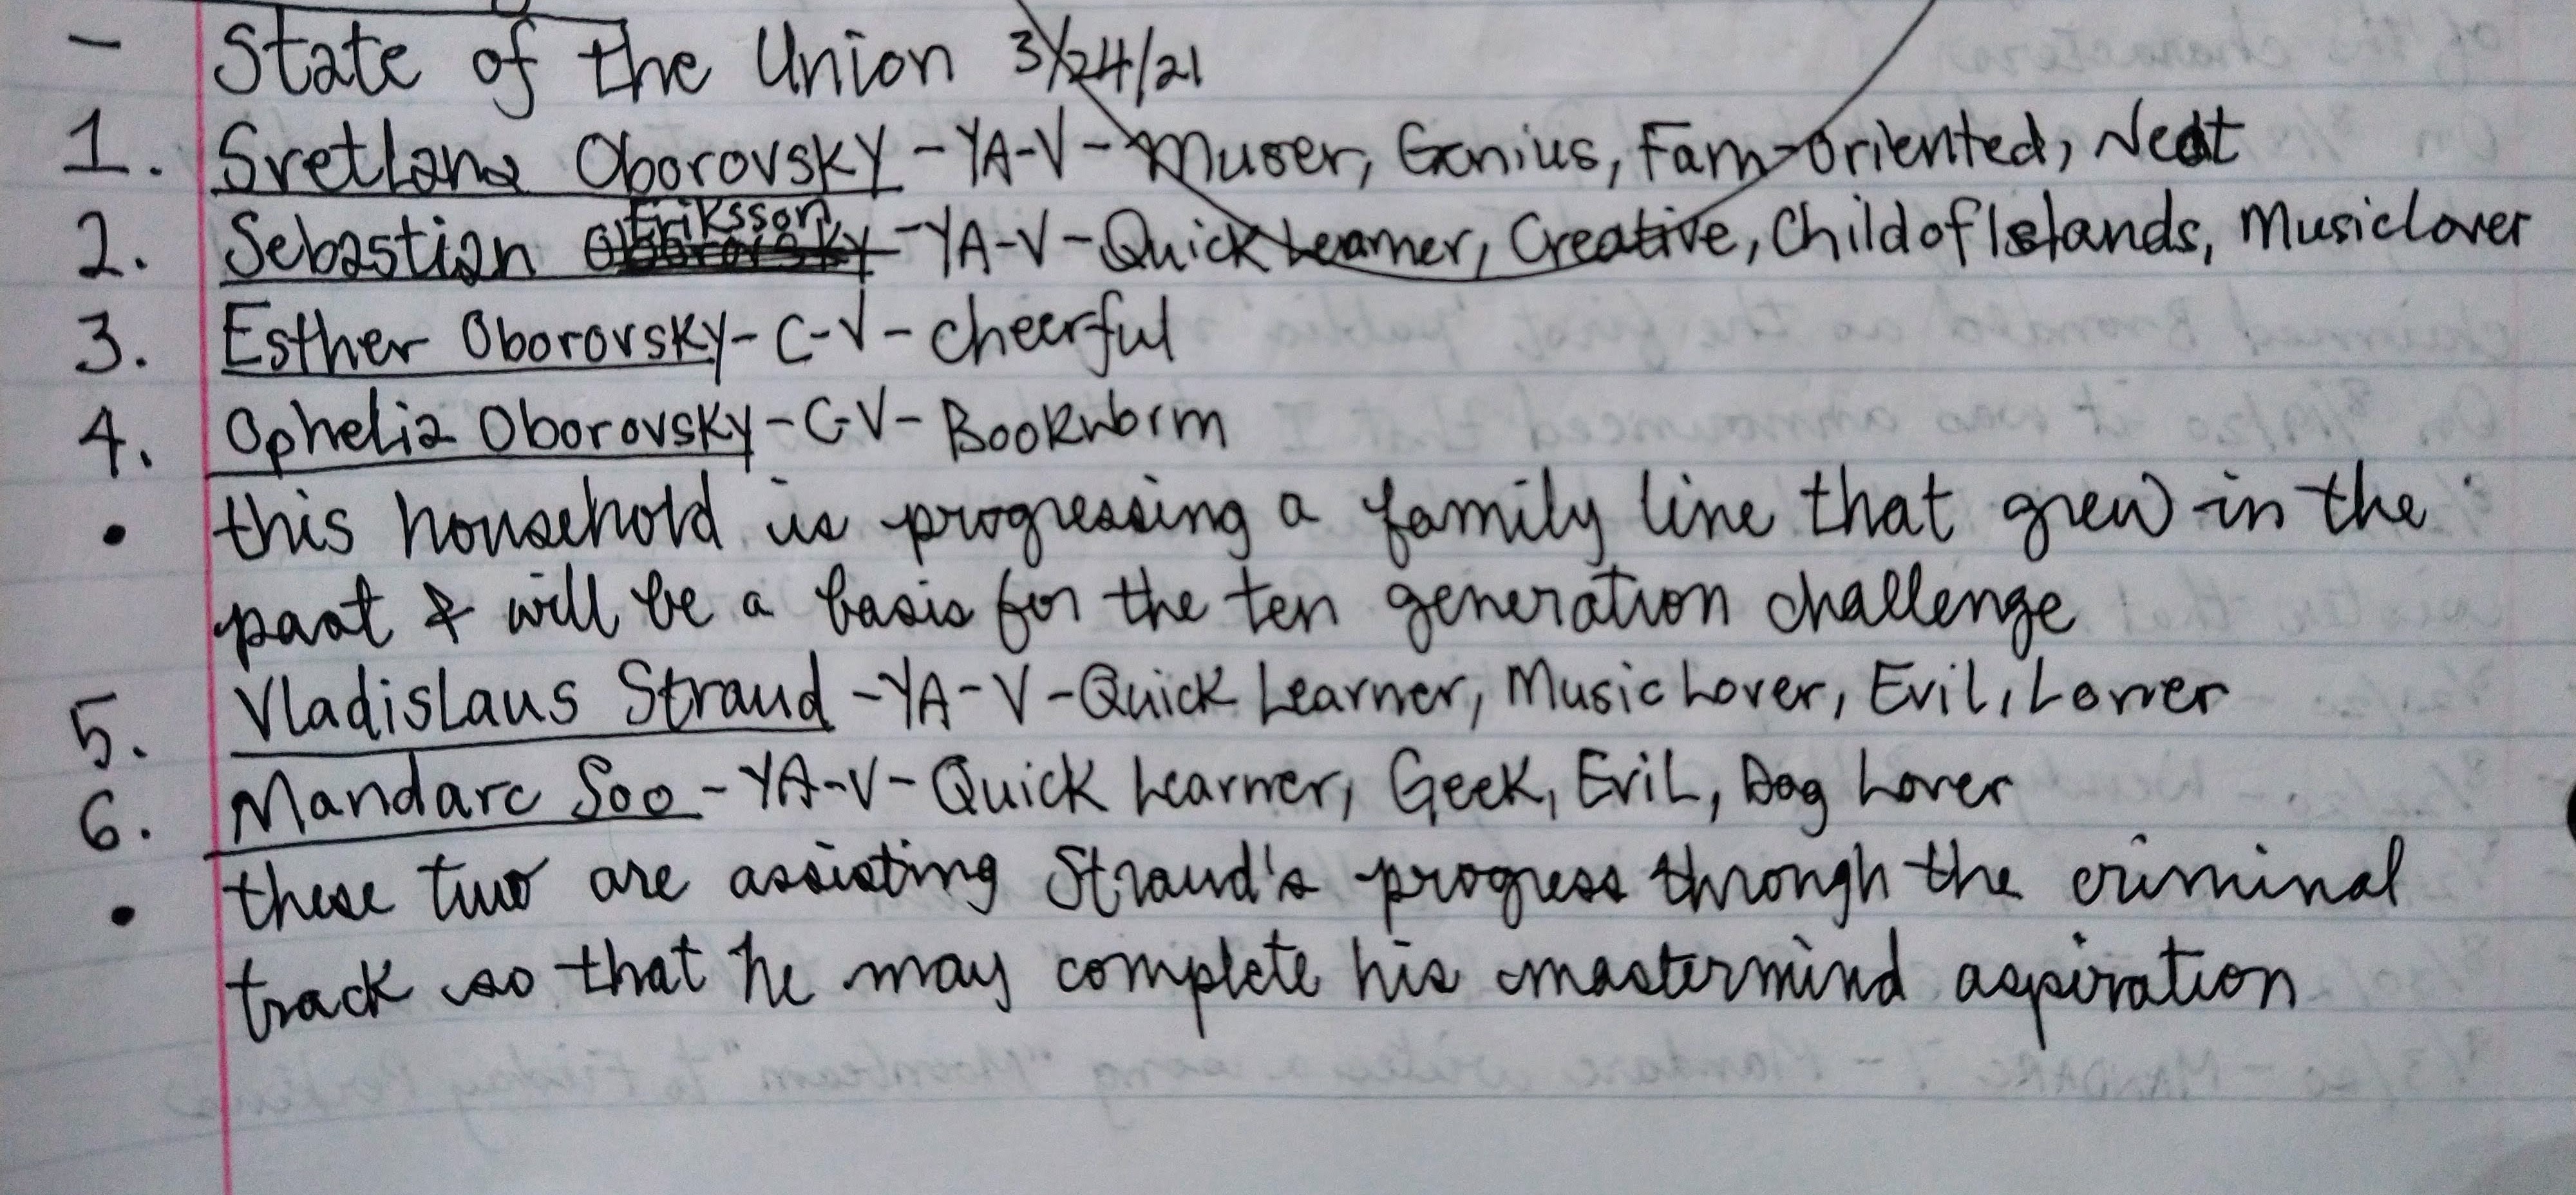 - State of the Union 3/24/21
1. Svetlana Oborovsky - YA-V- Muser, Genius, Fam-oriented, Neat
2. Sebastian Eriksson - YA-V- Quick Learner, Creative, Child of Islands, Musiclover
3. Esther Oborovsky- C-V- cheerful
4. Ophelia Oborovsky-C-V- Bookworm
• this household is progressing a family line that grew in the
past & will be a basis for the ten generation challenge
5. Vladislaus Straud -YA-V-Quick Learner, Music Lover, Evil, Loner
6. Mandarc Soo - YA-V- Quick Learner, Geek, Evil, Dog Lover
• these two are assisting Straud's progress through the criminal
track so that he may complete his mastermind aspiration